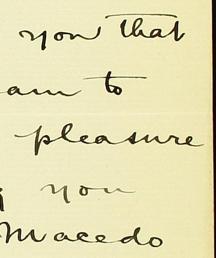 you that
am to
pleasure
you
Macedo